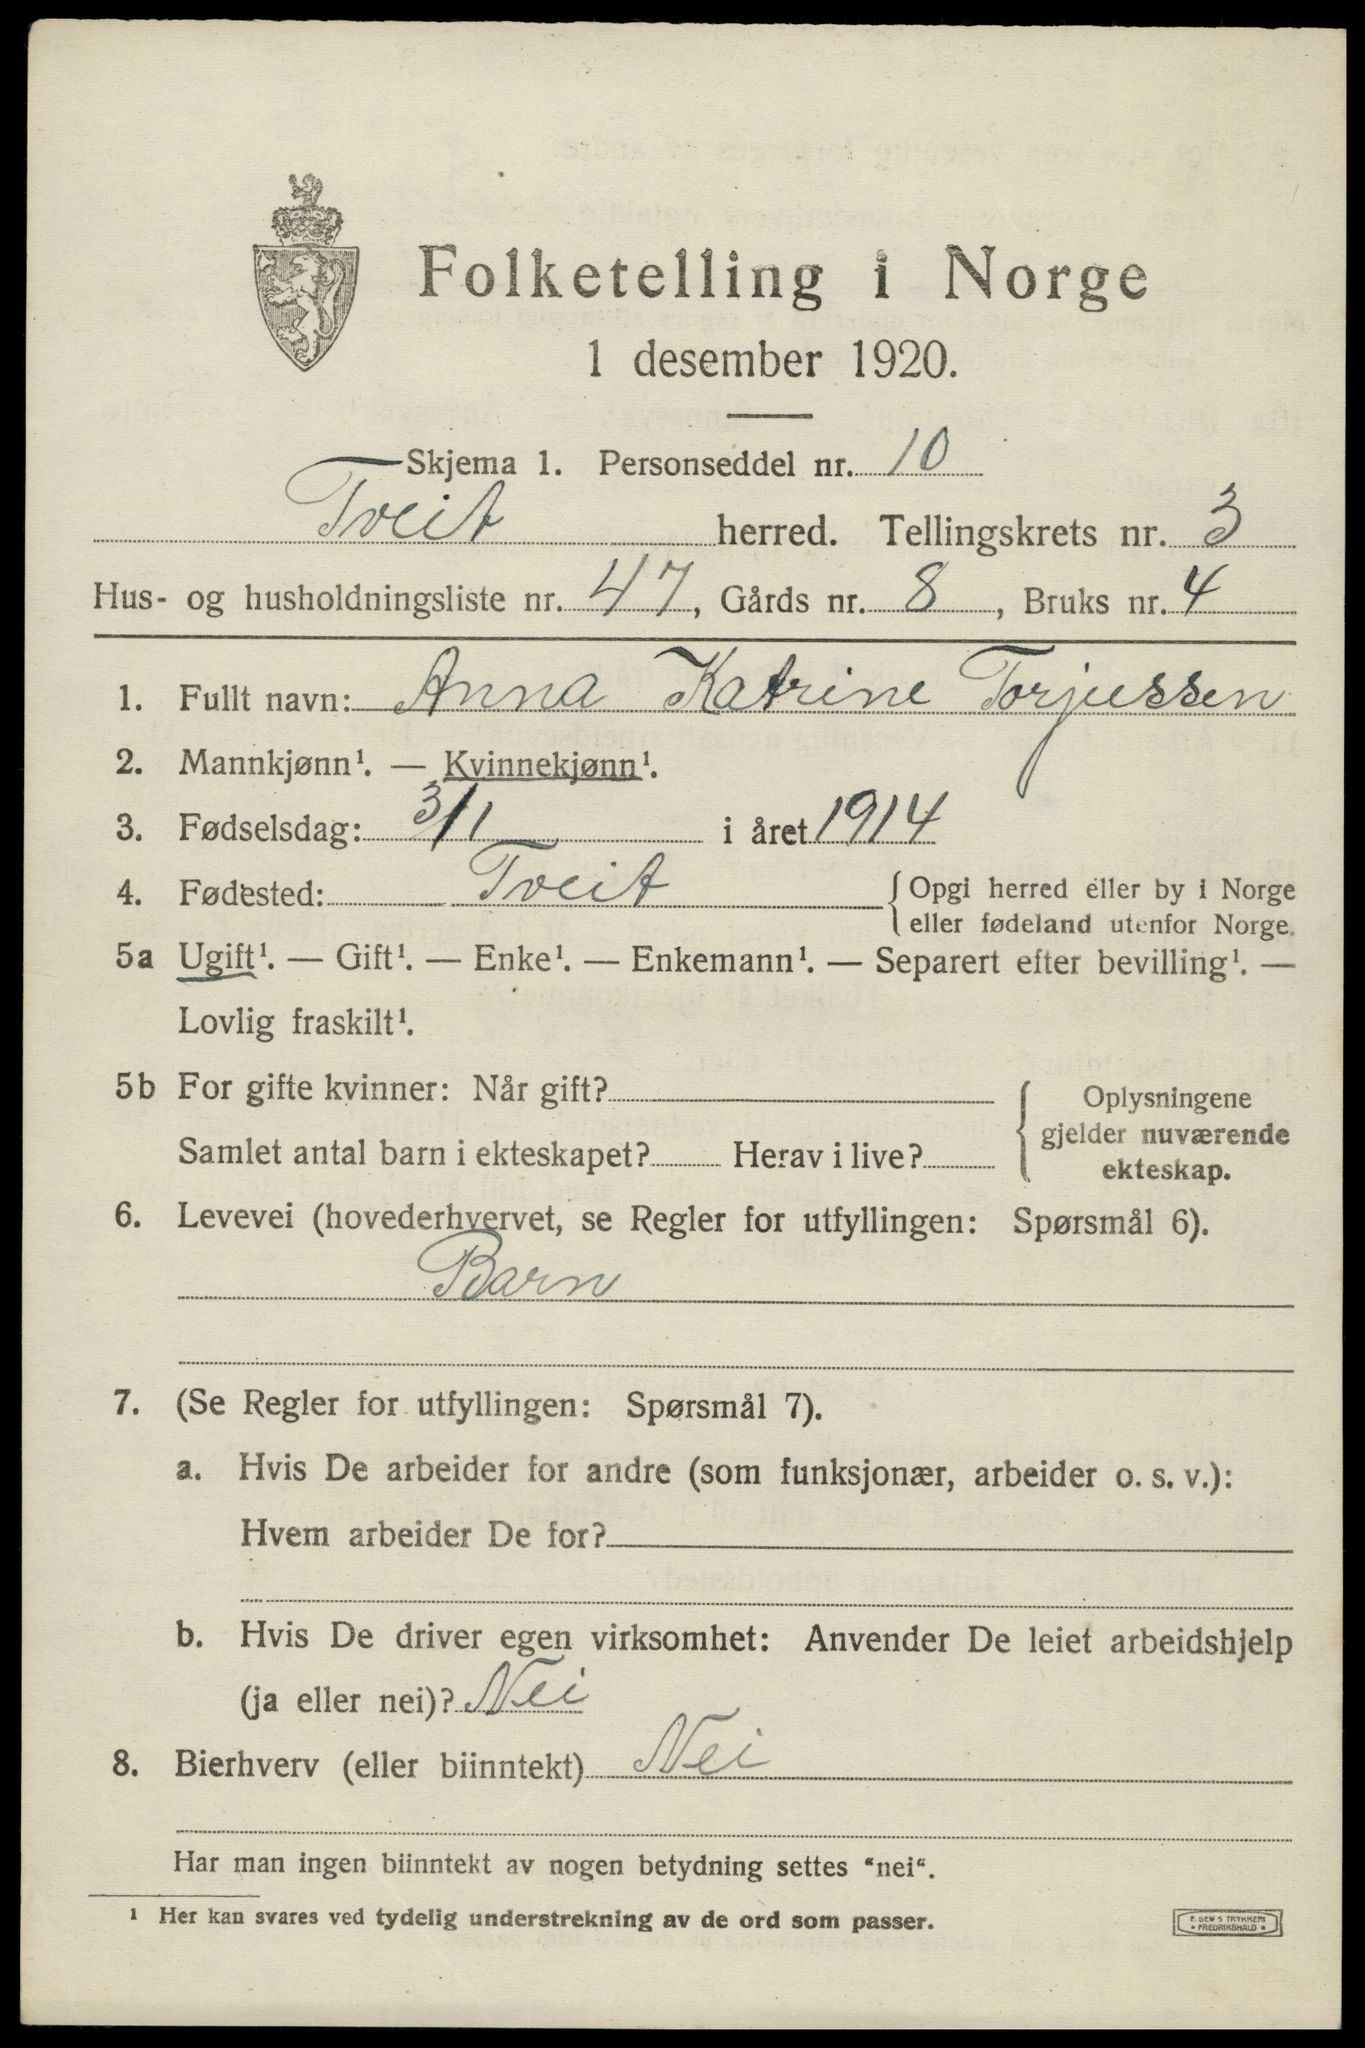 Folketelling i Norge
1 desember 1920.
Skjema 1. Personseddel nr. 10
Tveit herred. Tellingskrets nr. 3
Hus- og husholdningsliste nr. 47, Gårds nr. 8, Bruks nr. 4
1. Fullt navn: Anna Katrine Torjussen
2. Mannkjønn¹. — Kvinnekjønn¹.
3. Fødselsdag: 3/1 i året 1914
4. Fødested: Tveit { Opgi herred eller by i Norge
eller fødeland utenfor Norge.
5a Ugift¹. — Gift¹. — Enke¹. — Enkemann¹. — Separert efter bevilling¹. —
Lovlig fraskilt¹.
5b For gifte kvinner: Når gift?
Samlet antal barn i ekteskapet? Herav i live?
Oplysningene
gjelder nuværende
ekteskap.
6. Levevei (hovederhvervet, se Regler for utfyllingen: Spørsmål 6).
Barn
7. (Se Regler for utfyllingen: Spørsmål 7).
a. Hvis De arbeider for andre (som funksjonær, arbeider o. s. v.):
Hvem arbeider De for?
b. Hvis De driver egen virksomhet: Anvender De leiet arbeidshjelp
(ja eller nei)? Nei
8. Bierhverv (eller biinntekt) Nei
Har man ingen biinntekt av nogen betydning settes "nei".
¹ Her kan svares ved tydelig understrekning av de ord som passer.
F. SEM'S TRYKKERI
• FREDRIKSHALD •